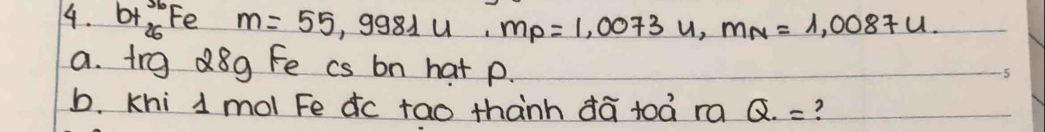 4. bt ⁵⁶₂₆Fe m = 55,9981 u, mp = 1,0073 u, mN = 1,0087 u.
a. trg 28g Fe cs bn hạt p.
b. Khi 1 mol Fe đc tạo thành đã toả ra Q. = ?
5